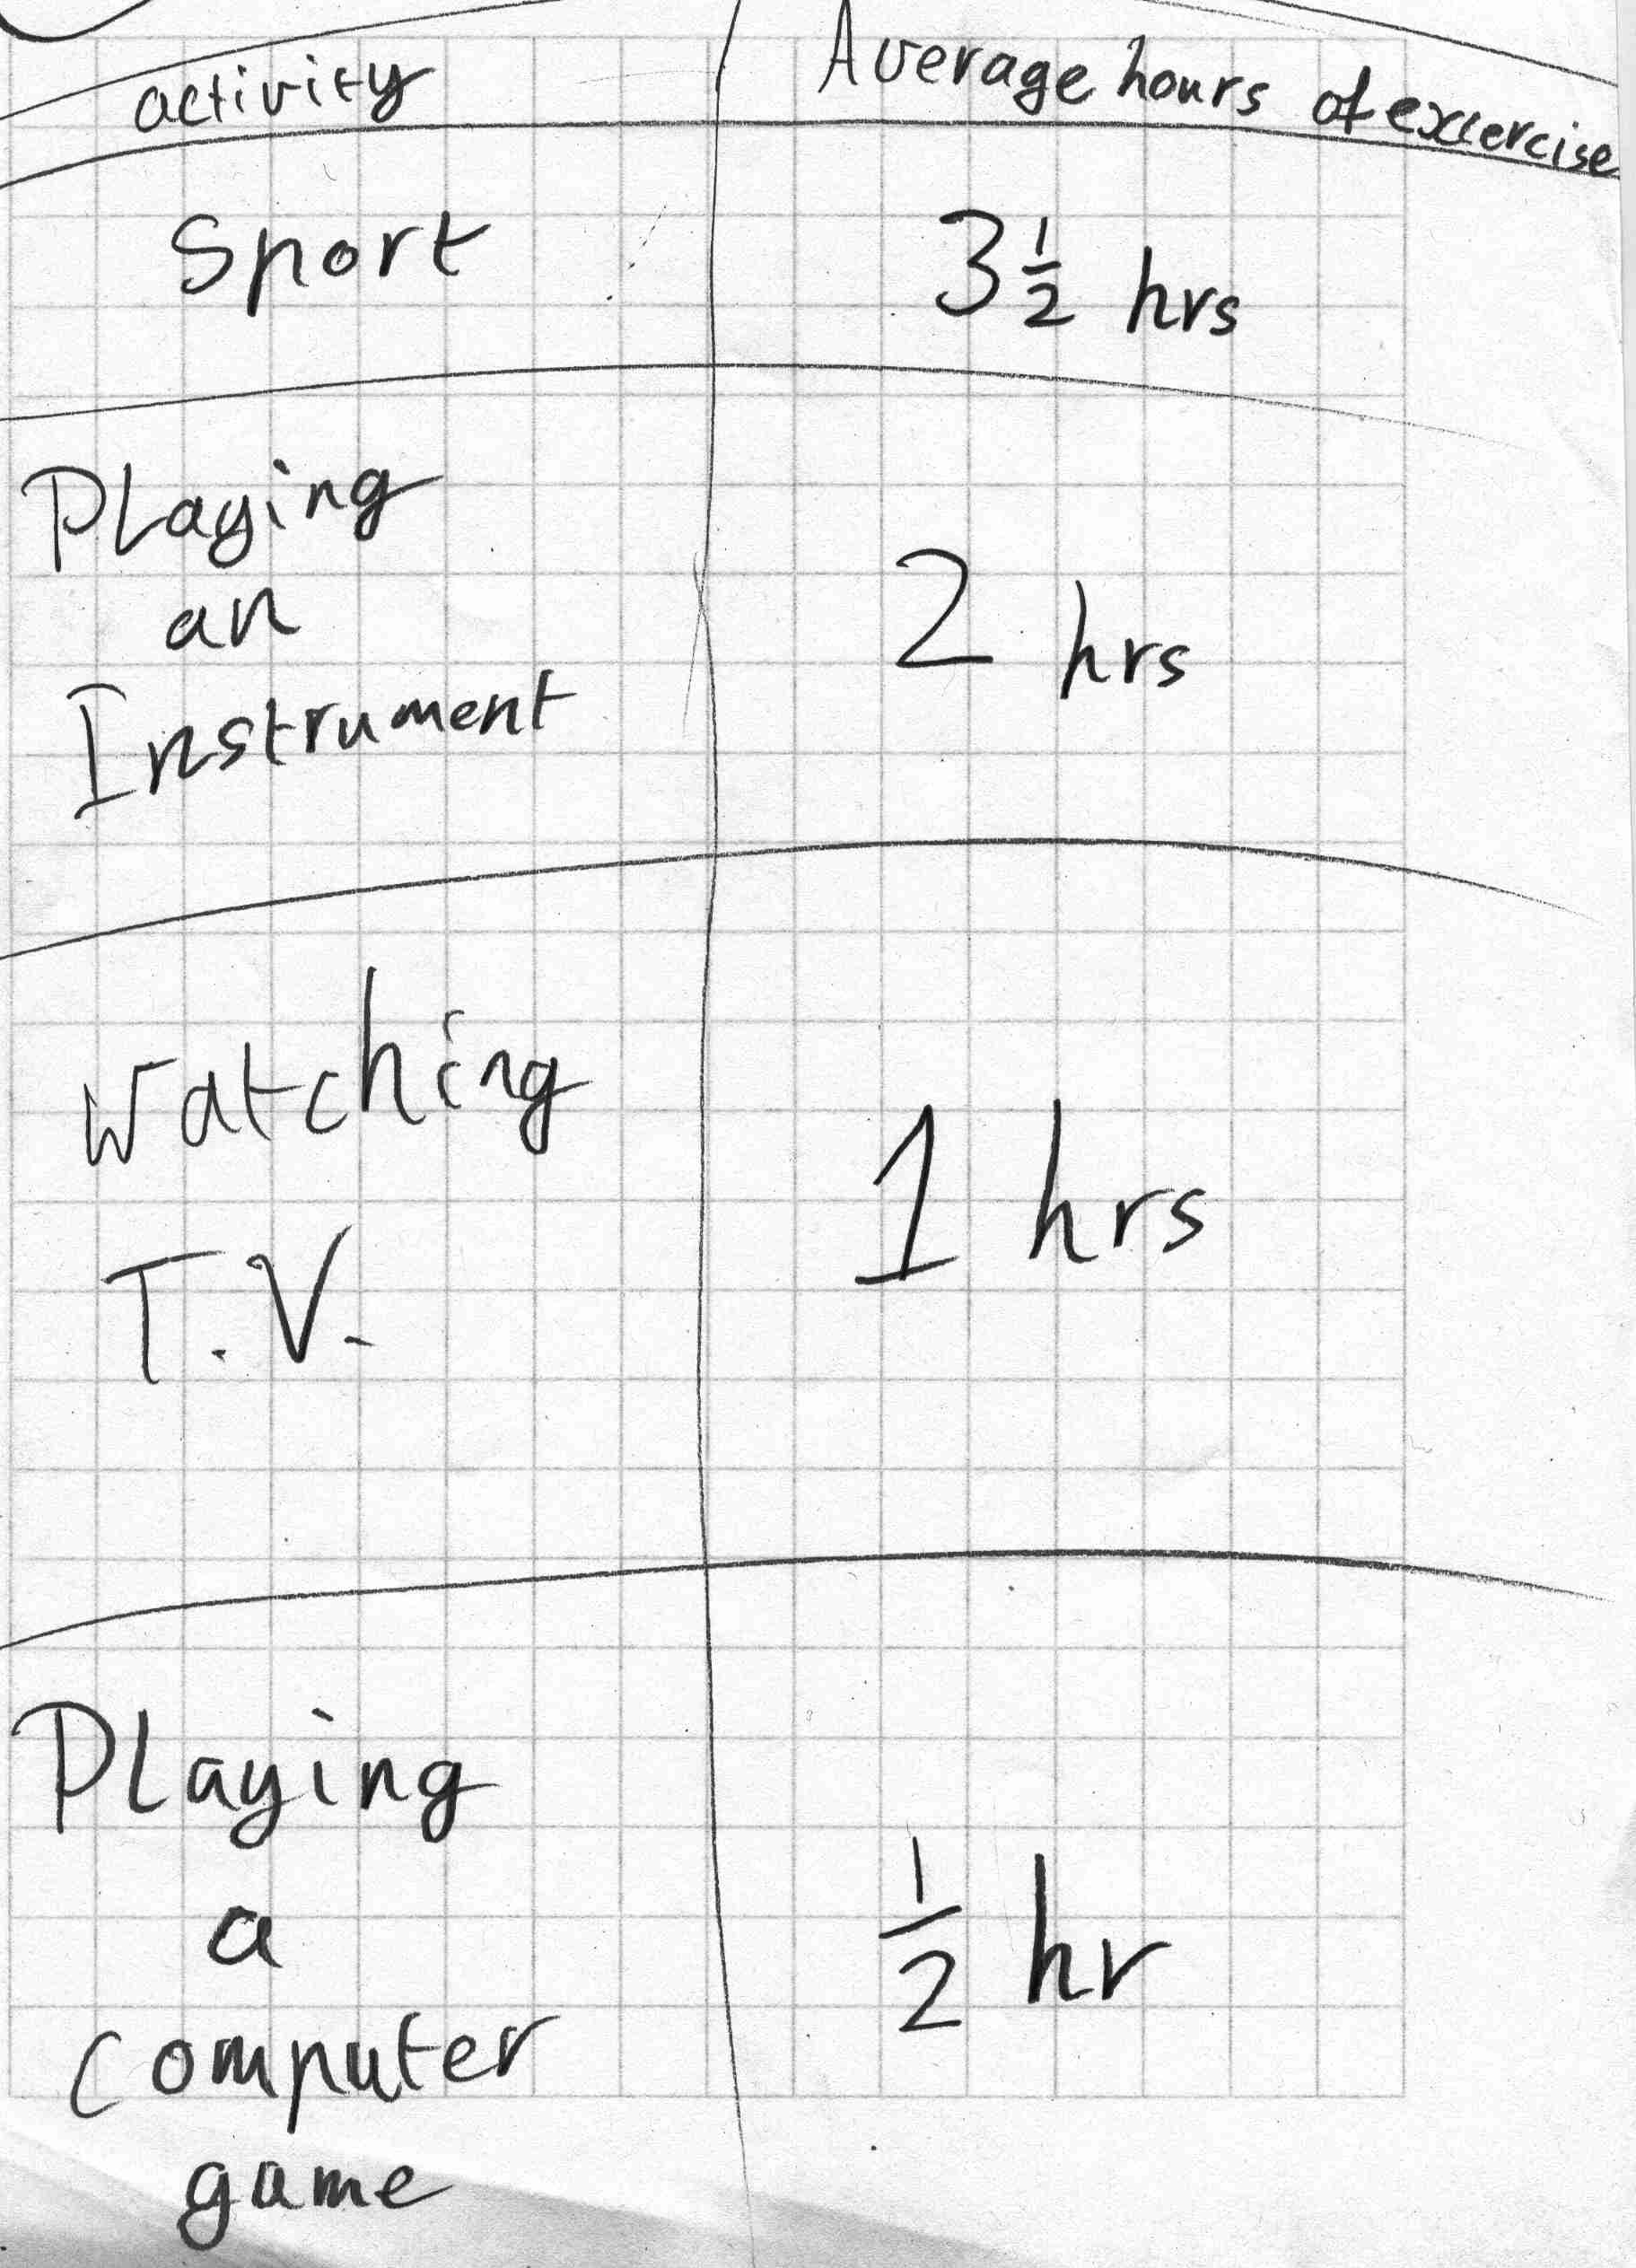 activity Average hours of excercise
Sport 3½ hrs
Playing
an 2 hrs
Instrument
Watching
1 hrs
T.V.
Playing
a ½ hr
computer
game